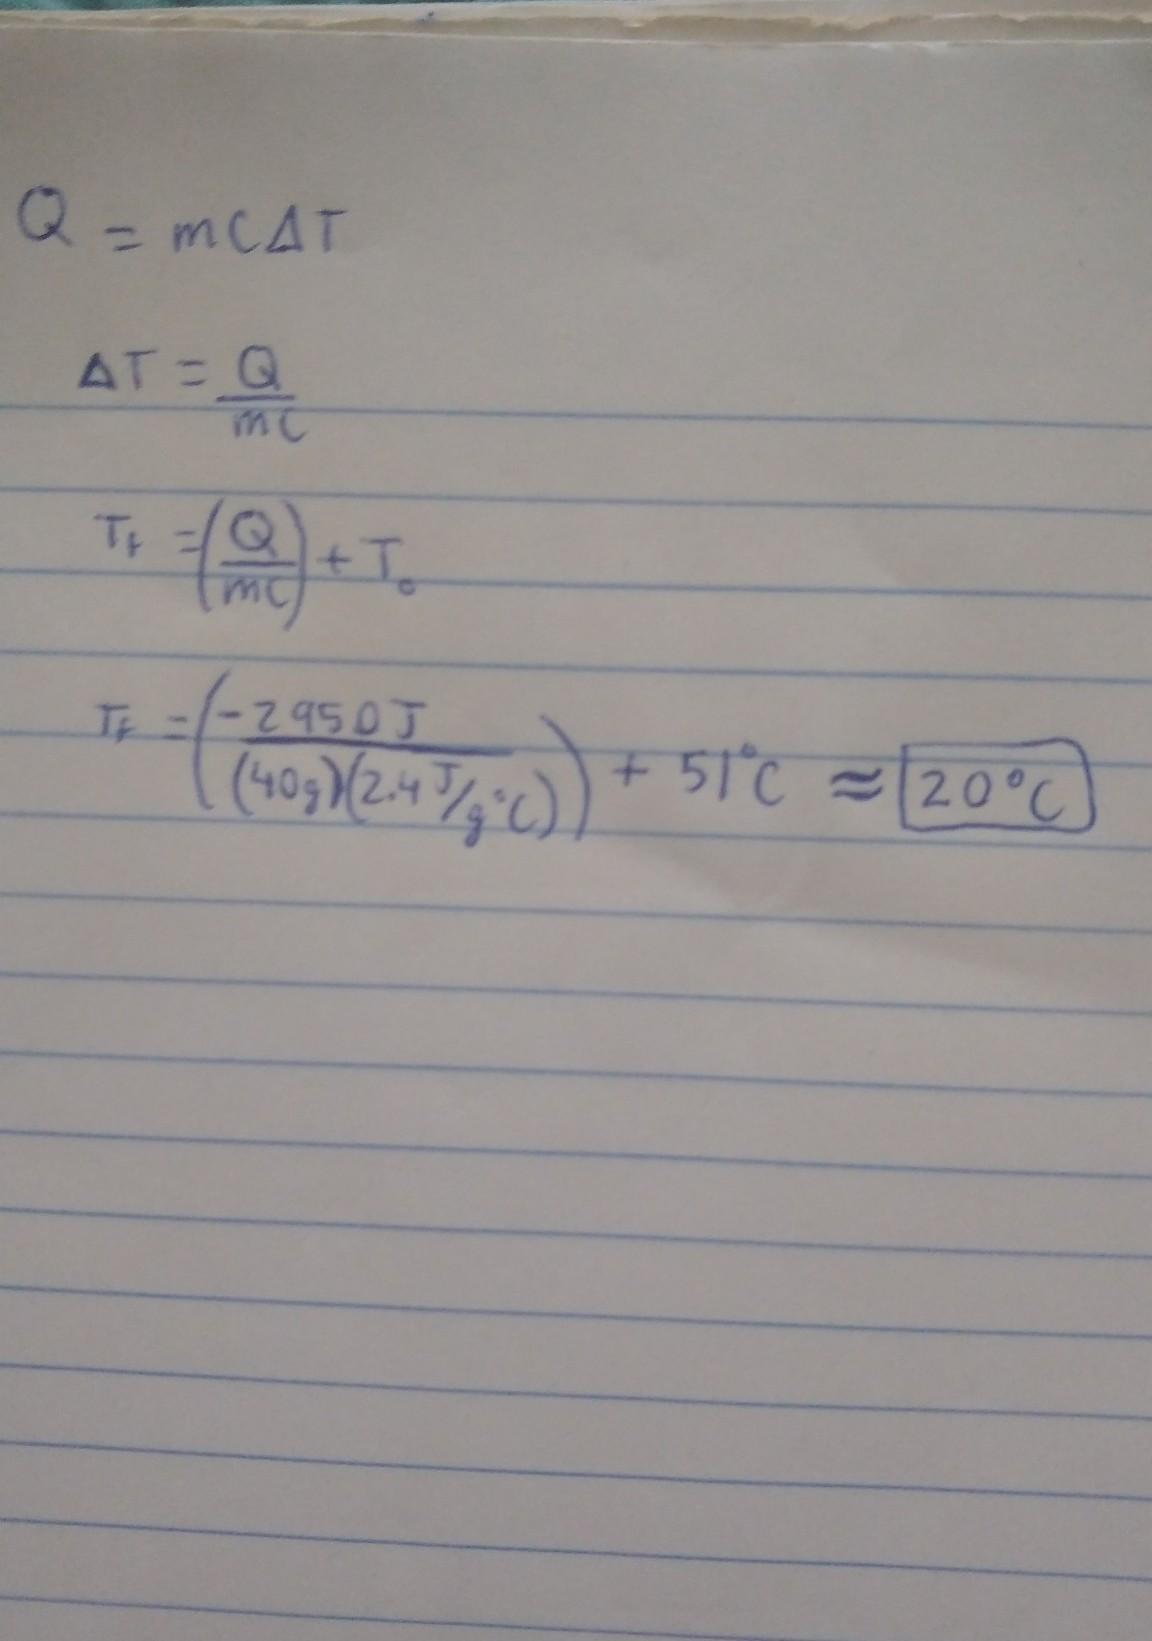 Q = mCΔT
ΔT = Q/mC
T_f = (Q/mC) + T₀
T_f = (-2950J/(40g)(2.4 J/g°C)) + 51°C ≈ 20°C